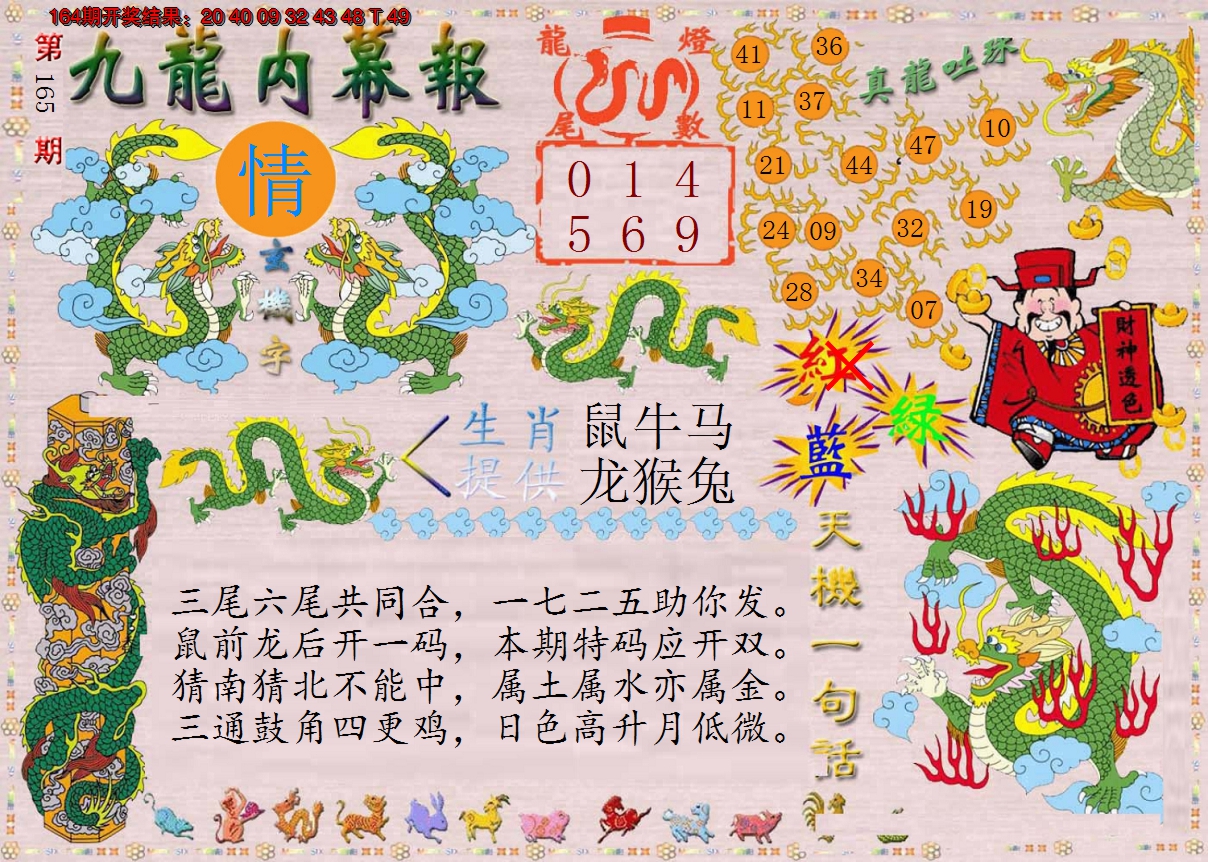 164期开奖结果：20 40 09 32 43 48 T 49
第165期
九龍内幕報
情
玄機字
龍燈
尾數
0 1 4
5 6 9
真龍吐珠
41 36
11 37
47 10
21 44
19
24 09 32
28 34
07
財神透色
紅
綠
藍
生肖 鼠牛马
提供 龙猴兔
天機一句话
三尾六尾共同合，一七二五助你发。
鼠前龙后开一码，本期特码应开双。
猜南猜北不能中，属土属水亦属金。
三通鼓角四更鸡，日色高升月低微。